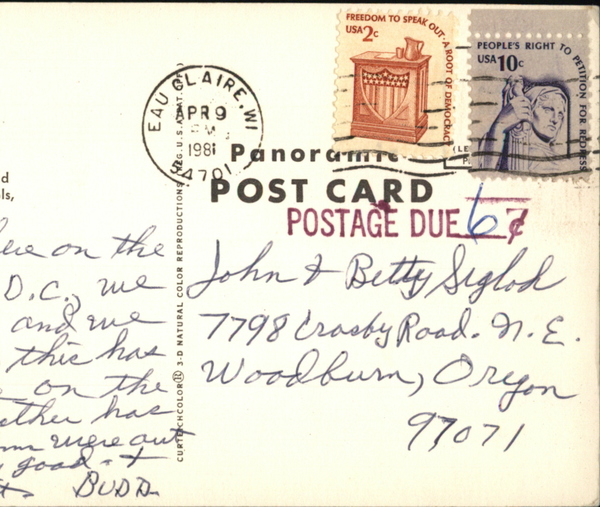 FREEDOM TO SPEAK OUT · A ROOT OF DEMOCRACY
USA 2c
PEOPLE'S RIGHT TO PETITION FOR REDRESS
USA 10c
EAU CLAIRE, WI
APR 9
PM
1981
54701
Panoramic
POST CARD
POSTAGE DUE 6 7¢
John & Betty
7798 Crosby Road. N. E.
Woodburn, Oregon
97071
CURTEICHCOLOR® 3-D NATURAL COLOR REPRODUCTION (REG. U.S.A. PAT. OFF.)
d
ls,
on the
D.C., we
and we
this has
on the
has
were out
good - &
BUDD